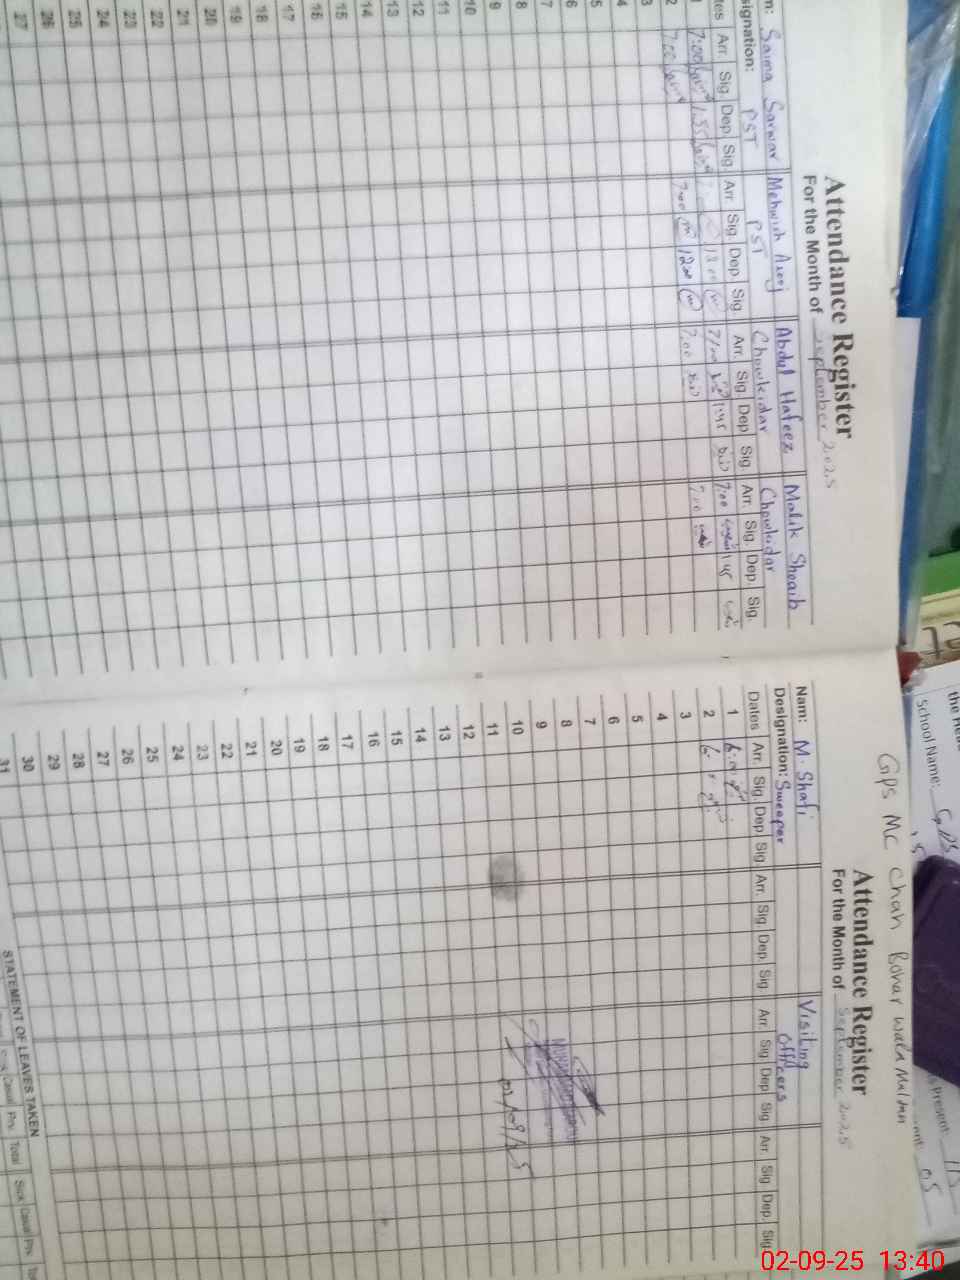 Attendance Register
For the Month of September 2025
m: Saima Sarwar Mehwish Arooj Abdul Hafeez Malik Shoaib
signation: PST PST Chowkidar Chowkidar
tes Arr. Sig. Dep Sig. Arr. Sig. Dep Sig. Arr. Sig. Dep Sig. Arr. Sig. Dep. Sig.
1 7:00 1:35 1300 7:00 1:45 7:00 1:45
2 7:00 7:00 1200 7:00 7:00
3
4
5
6
7
8
9
10
11
12
13
14
15
16
17
18
19
20
21
22
23
24
25
26
27
GPS MC Chah Bohar wala Multan
Attendance Register
For the Month of September 2025
Nam: M. Shafi Visiting
Designation: Sweeper Officers
Dates Arr. Sig. Dep Sig. Arr. Sig. Dep. Sig Arr. Sig Dep Sig. Arr. Sig. Dep. Sig
1 6:00
2
3
4
5
6
7
8
9
10 02/09/25
11
12
13
14
15
16
17
18
19
20
21
22
23
24
25
26
27
28
29
30
31
STATEMENT OF LEAVES TAKEN
Casual Priv. Total Sick Casual Priv.
School Name: GPS
Present:
05
02-09-25 13:40